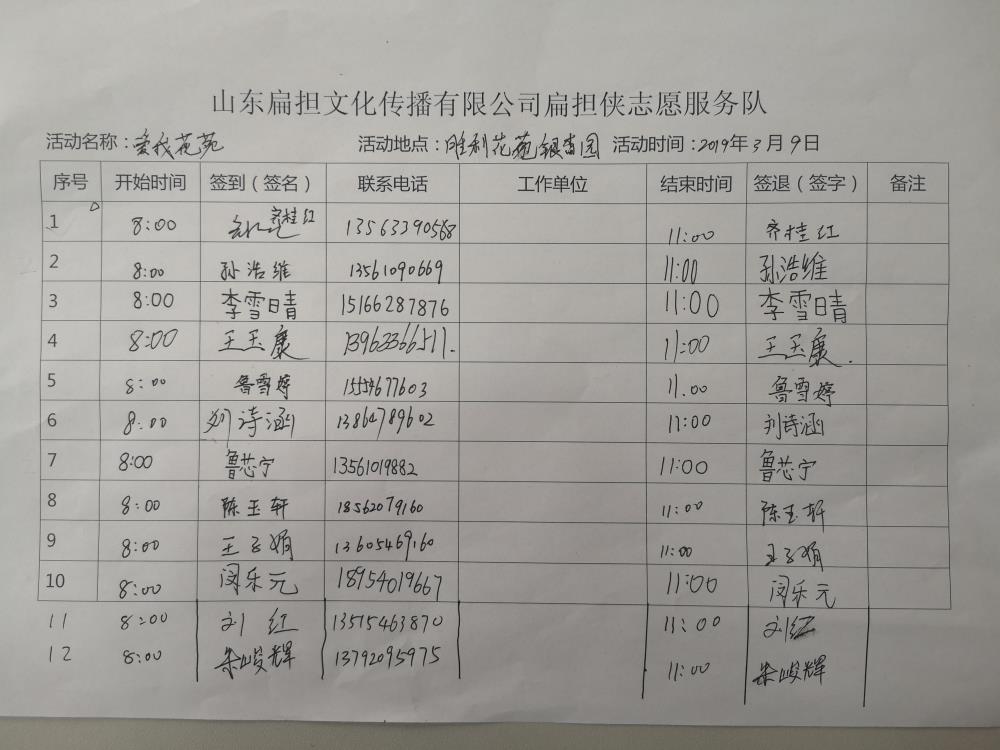 山东扁担文化传播有限公司扁担侠志愿服务队
活动名称：爱我花苑 活动地点：胜利花苑银杏园 活动时间：2019年3月9日
序号 开始时间 签到（签名） 联系电话 工作单位 结束时间 签退（签字） 备注
1 8:00 齐桂红 13563390568 11:00 齐桂红
2 8:00 孙浩维 13561090669 11:00 孙浩维
3 8:00 李雪晴 15166287876 11:00 李雪晴
4 8:00 王玉康 13963366511. 11:00 王玉康.
5 8:00 鲁雪婷 15554677603 11.00 鲁雪婷
6 8:00 刘诗涵 13864789602 11:00 刘诗涵
7 8:00 鲁芯宁 13561019882 11:00 鲁芯宁
8 8:00 陈玉轩 18562079160 11:00 陈玉轩
9 8:00 王子娟 13605469160 11:00 王子娟
10 8:00 闵乐元 18954019667 11:00 闵乐元
11 8:00 刘红 13515463870 11:00 刘红
12 8:00 朱峻辉 13792095975 11:00 朱峻辉